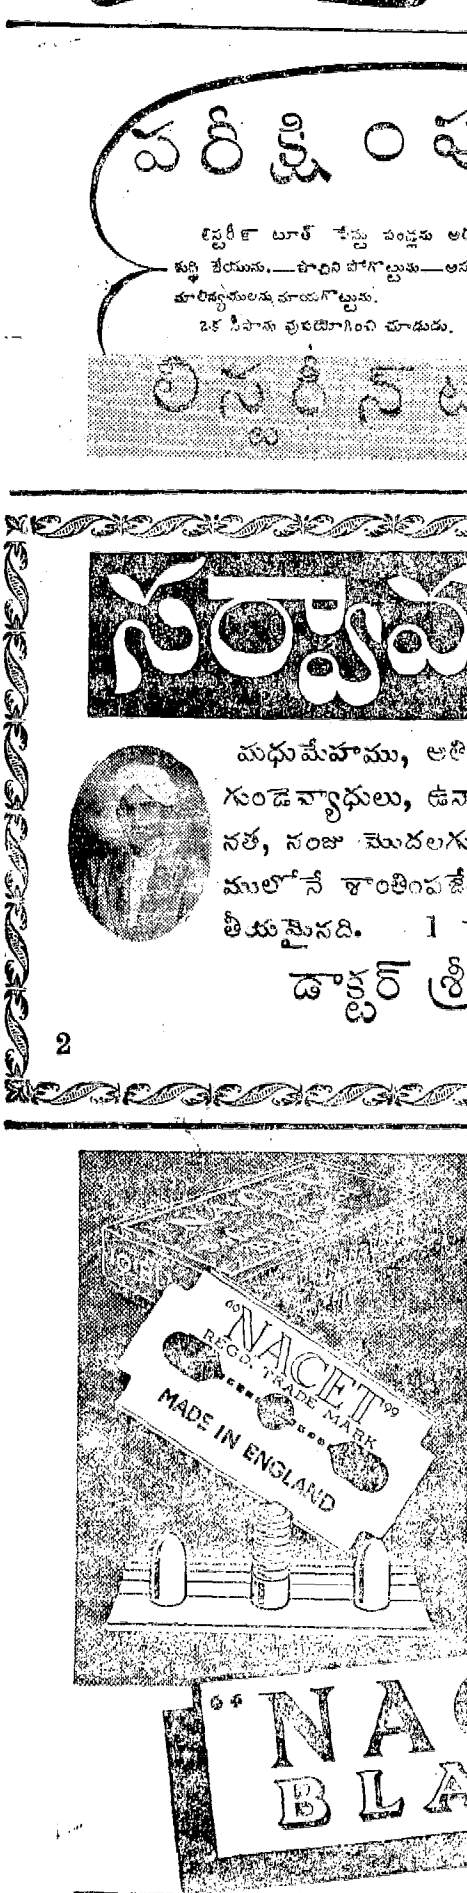 పరీక్షిం
లిస్టరీన్ టూత్ పేస్టు పండ్లను
శుద్ధి చేయును.—పాచిని పోగొట్టును—
మాలిన్యములను మాయగొట్టును.
ఒక సీసాను వుపయోగించి చూడుడు.
లిస్టరీన్ ట
సర్వావ
మధుమేహము, అతి
గుండెవ్యాధులు, ఉన్మా
నత, నంజు మొదలగు
ములోనే శాంతింపజే
తీయమైనది. 1
డాక్టర్ శ్రీ
2
"NACET"
REGD. TRADE MARK
MADE IN ENGLAND
"NAC
BLA